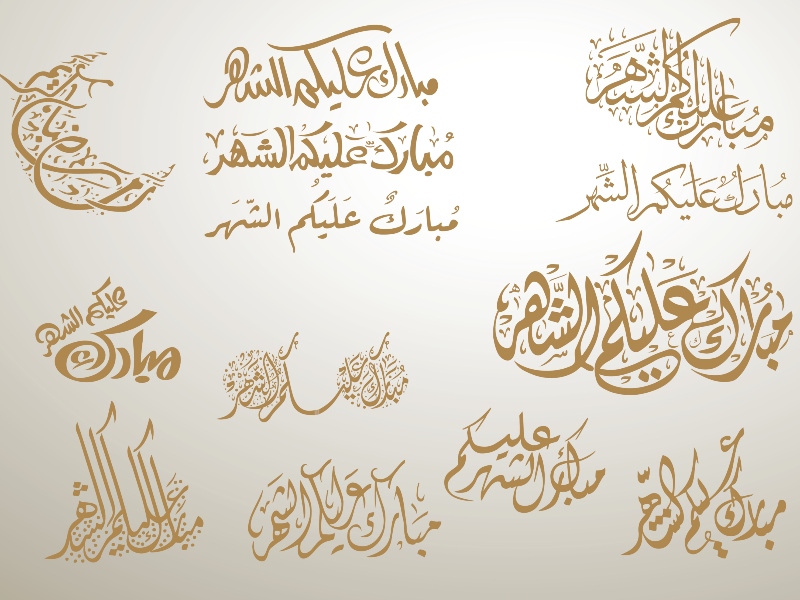 رمضان كريم
مبارك عليكم الشهر
مبارك عليكم الشهر
مُبارَكٌ عَلَيكُم الشّهَر
مبارك عليكم الشهر
مُبارَكٌ عَلَيكُم الشّهر
عليكم الشهر
مبارك
مُبَارَك عَلَيْكُم الشَّهْر
مبارك عليكم الشهر
مبارك عليكم الشهر
مبارك عليكم الشهر
مبارك عليكم الشهر
مبارك عليكم الشهر